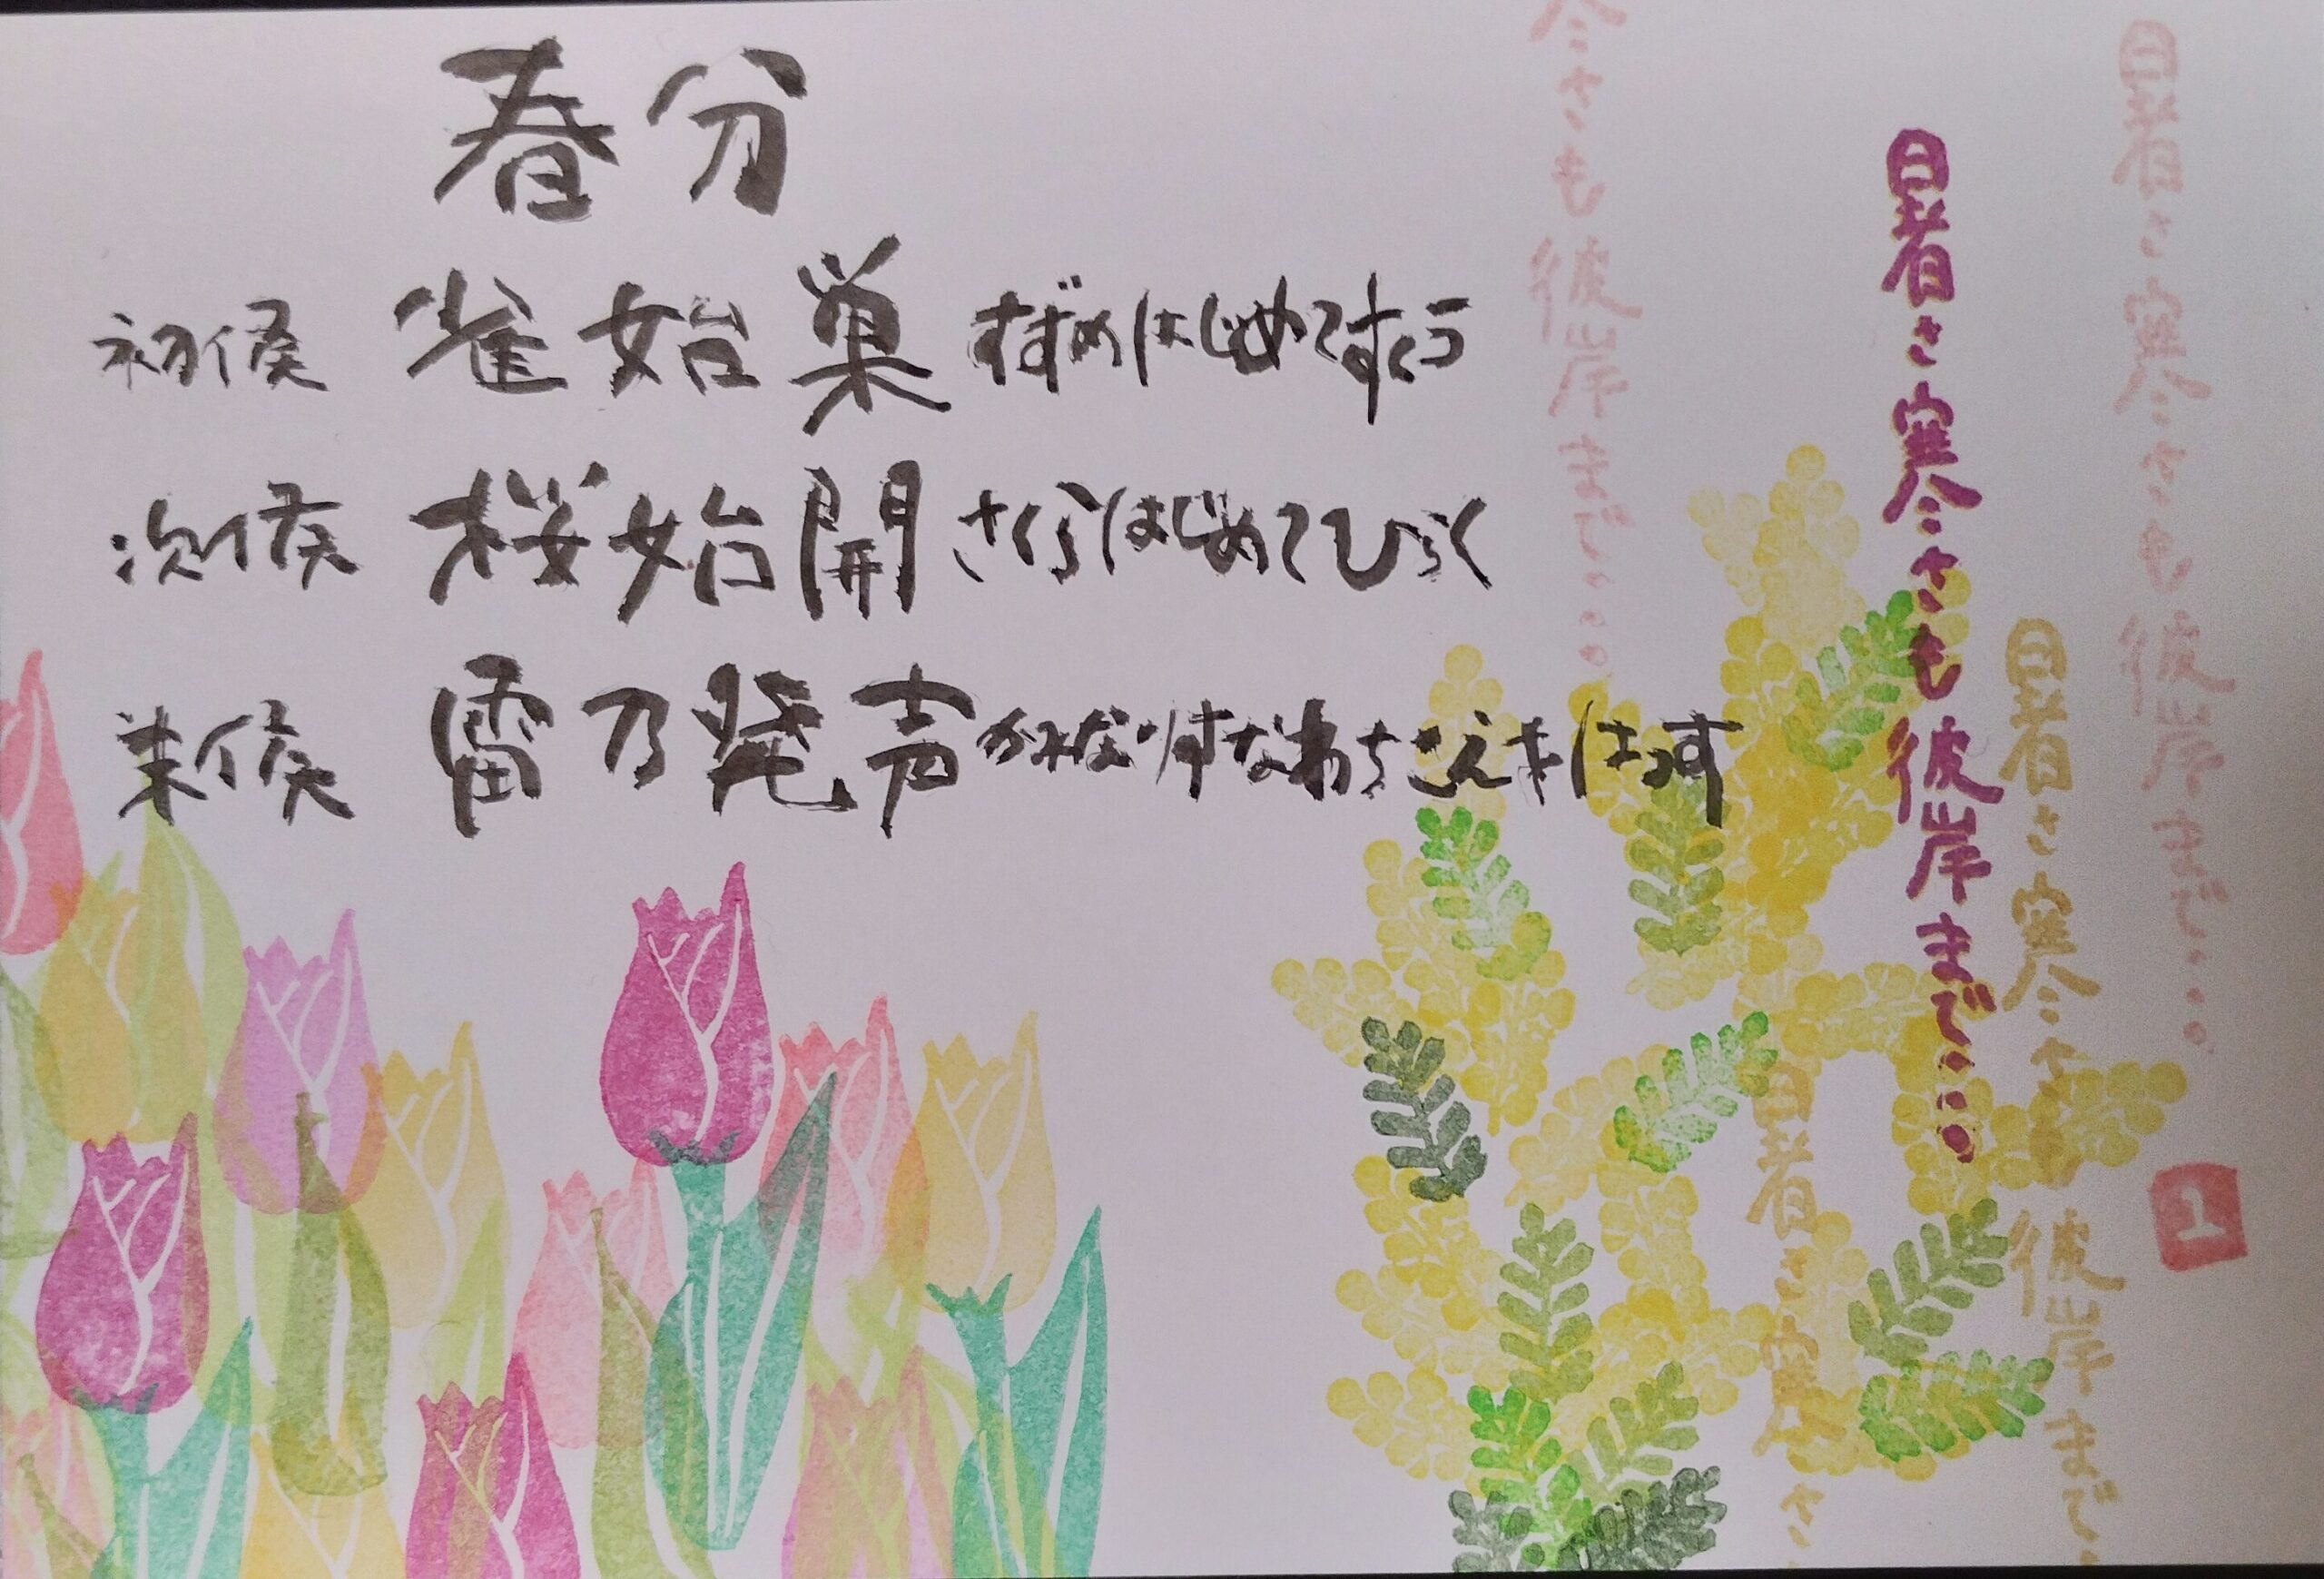 春分
初候 雀始巣 すずめはじめてすくう
次候 桜始開 さくらはじめてひらく
末候 雷乃発声 かみなりすなわちこえをはっす
暑さ寒さも彼岸まで…。
暑さ寒さも彼岸まで…。
暑さ寒さも彼岸まで
寒さも彼岸まで…。
暑さ寒さ
1